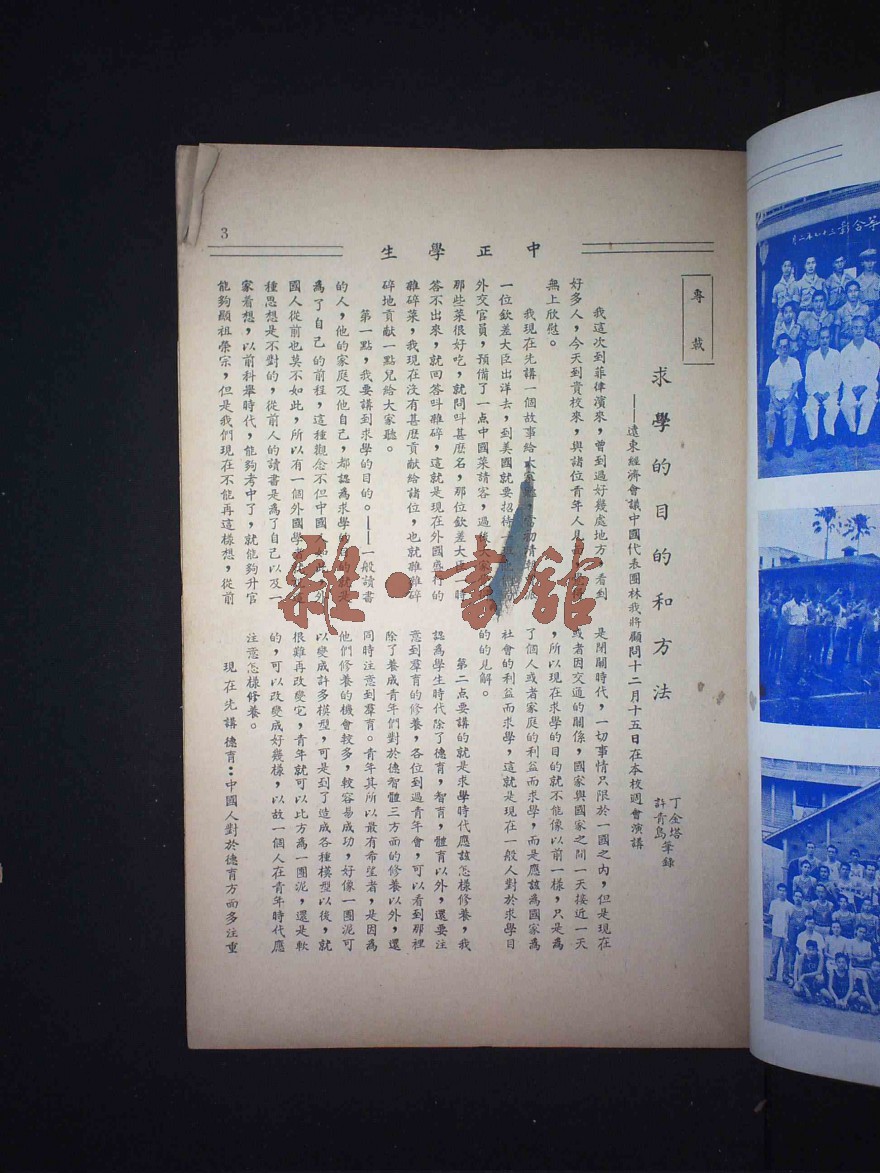 3
中正學生
專載
求學的目的和方法
——遠東經濟會議中國代表團林我將顧問十二月十五日在本校週會演講
丁金塔
許青島筆錄
我這次到菲律濱來，曾到過好幾處地方，看到
好多人，今天到貴校來，與諸位青年人見面，覺得
無上欣慰。
我現在先講一個故事給大家聽，當初清朝派
一位欽差大臣出洋去，到美國就要招待
外交官員，預備了一点中國菜請客，過後大家
那些菜很好吃，就問叫甚麽名，那位欽差大臣一時
答不出來，就回答叫雜碎，這就是現在外國盛行的
雜碎菜，我現在沒有甚麽貢献給諸位，也就雜雜碎
碎地貢献一點兒給大家聽。
第一點，我要講到求學的目的。——一般讀書
的人，他的家庭及他自己，都認為求學的目的就是
為了自己的前程，這種觀念不但中國如此，外
國人從前也莫不如此，所以有一個外國學者
種思想是不對的，從前人的讀書是為了自己以及一
家着想，以前科舉時代，能夠考中了，就能夠升官
能夠顯祖榮宗，但是我們現在不能再這樣想，從前
是閉關時代，一切事情只限於一國之内，但是現在
或者因交通的關係，國家與國家之間一天接近一天
，所以現在求學的目的就不能像以前一樣，只是為
了個人或者家庭的利益而求學，而是應該為國家為
社會的利益而求學，這就是現在一般人對於求學目
的的見解。
第二点要講的就是求學時代應該怎樣修養，我
認為學生時代除了德育，智育，體育以外，還要注
意到羣育的修養，各位到過青年會，可以看到那裡
除了養成青年們對於德智體三方面的修養以外，還
同時注意到羣育。青年其所以最有希望者，是因為
他們修養的機會較多，較容易成功，好像一團泥可
以變成許多模型，可是到了造成各種模型以後，就
很難再改變它，青年就可以比方為一團泥，還是軟
的，可以改變成好幾樣，以故一個人在青年時代應
注意怎樣修養。
現在先講德育：中國人對於德育方面多注重
雜·書館